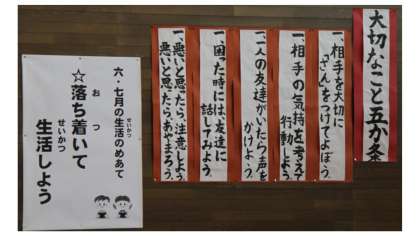 大切なこと五か条
一、相手を大切に
「さん」をつけてよぼう。
一、相手の気持を考えて
行動しよう
一、一人の友達がいたら声を
かけよう。
一、困った時には、友達に
話してみよう。
一、悪いと思ったら、注意しよう。
悪いと思ったら、あやまろう。
六・七月の生活のめあて
せいかつ
☆落ち着いて
お つ
生活しよう
せいかつ